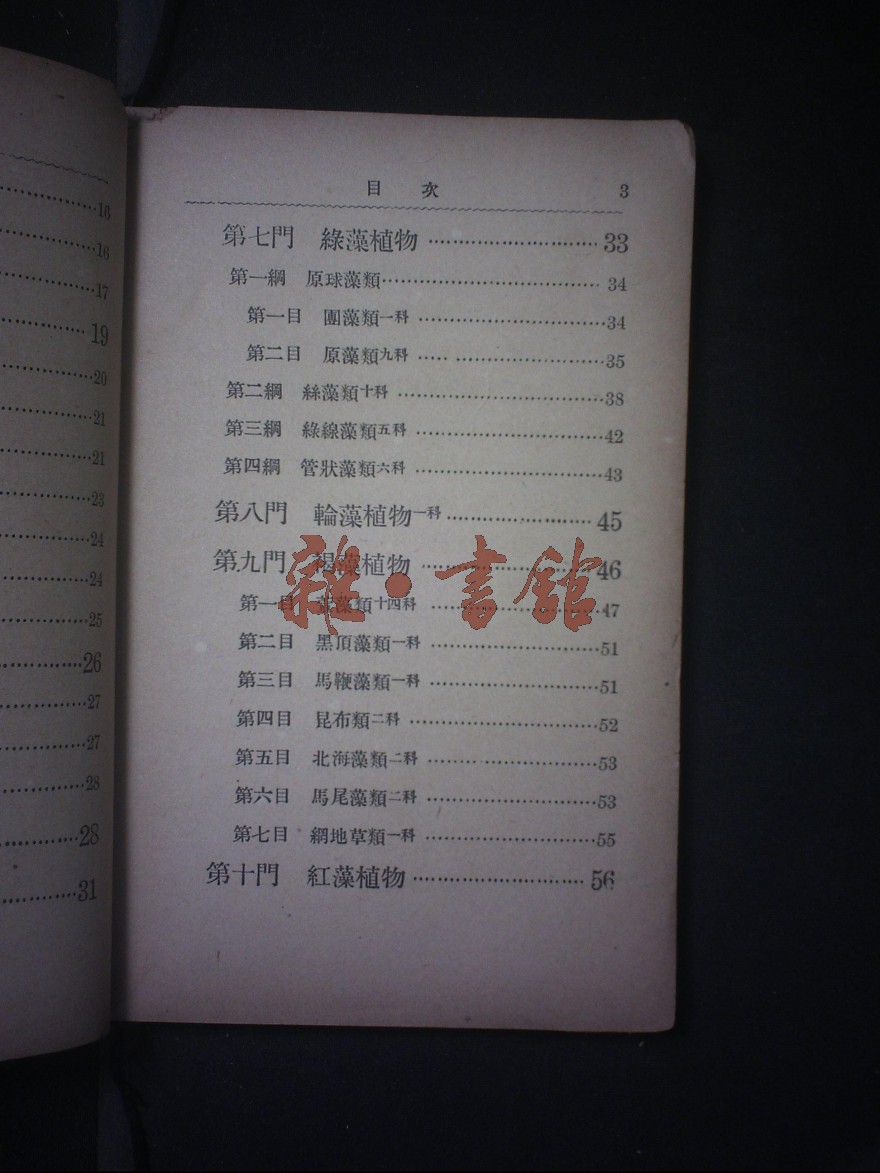 16
16
17
19
20
21
21
23
24
24
25
26
27
27
28
28
31
目次 3
第七門 綠藻植物 33
第一綱 原球藻類 34
第一目 團藻類一科 34
第二目 原藻類九科 35
第二綱 絲藻類十科 38
第三綱 綠線藻類五科 42
第四綱 管狀藻類六科 43
第八門 輪藻植物一科 45
第九門 褐藻植物 46
第一目 藻類十四科 47
第二目 黑頂藻類一科 51
第三目 馬鞭藻類一科 51
第四目 昆布類二科 52
第五目 北海藻類二科 53
第六目 馬尾藻類二科 53
第七目 網地草類一科 55
第十門 紅藻植物 56
雜·書館